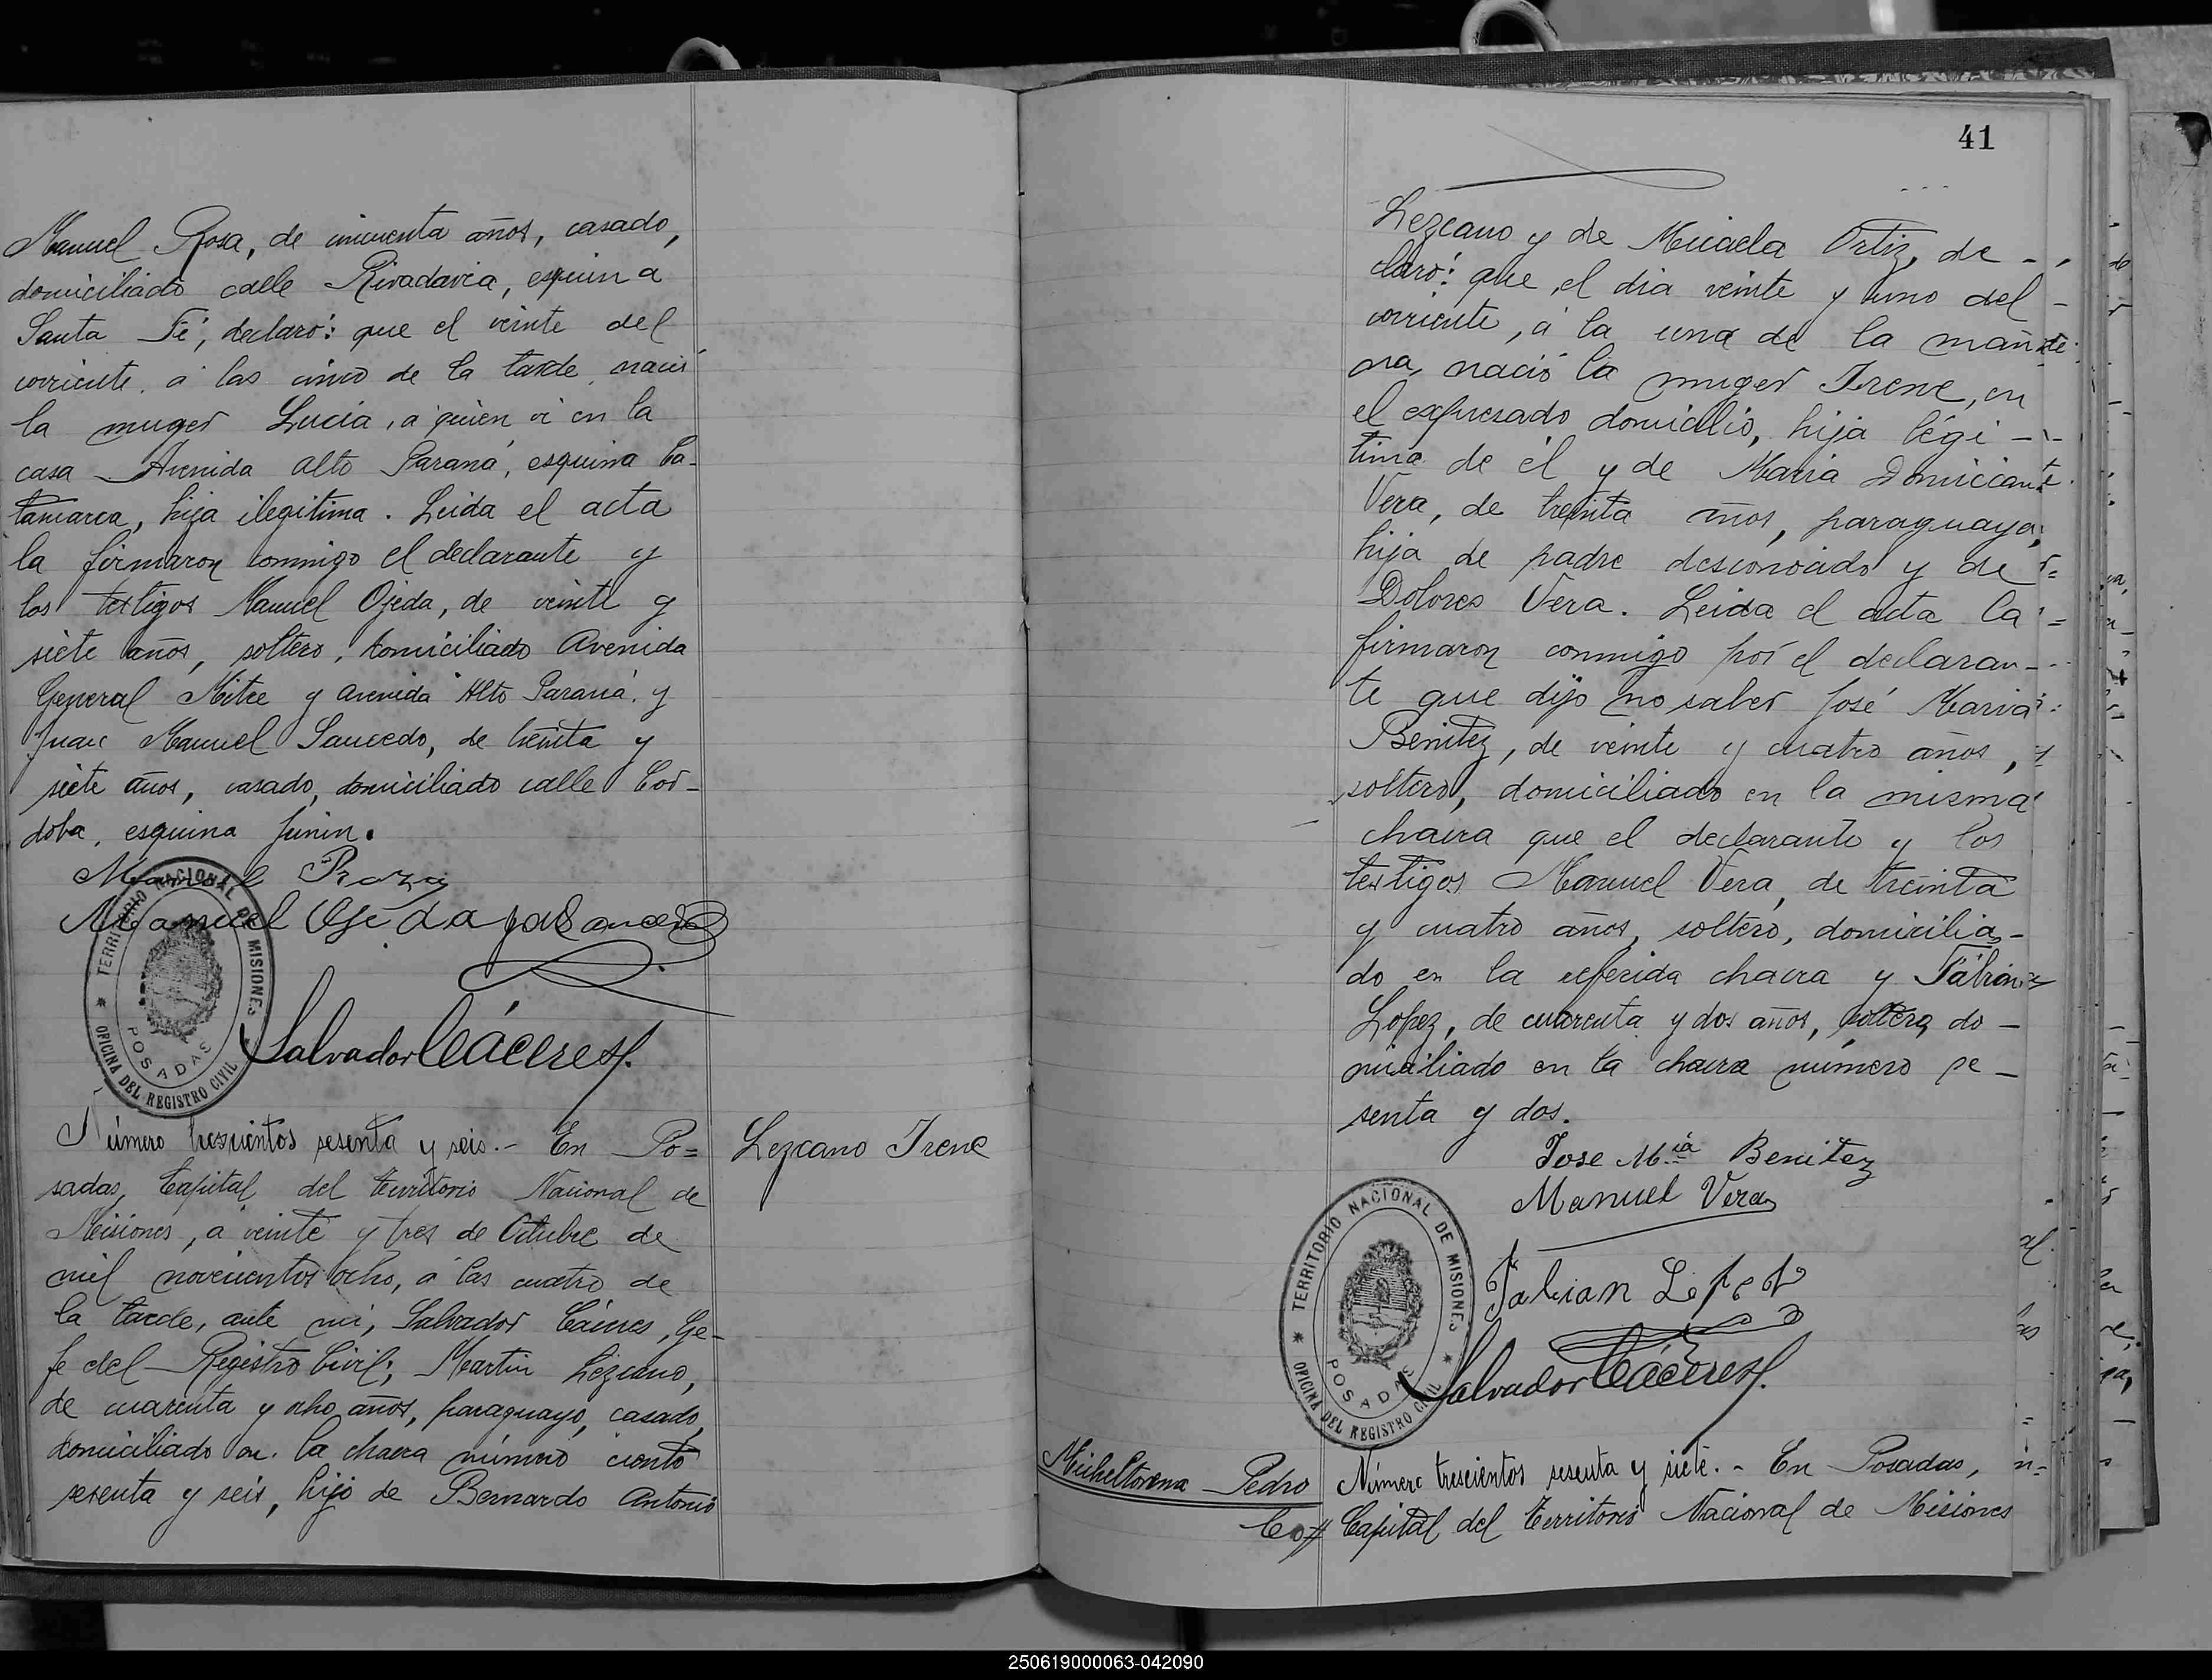 Manuel Rosa, de cincuenta años, casado,
domiciliado calle Rivadavia, esquina
Santa Fé, declaró: que el veinte del
corriente, a las cinco de la tarde, nació
la muger Lucia, a quien vi en la
casa Avenida alto Paraná, esquina Ca-
tamarca, hija ilegitima. Leida el acta
la firmaron conmigo el declarante y
los testigos Manuel Ojeda, de veinte y
siete años, soltero, domiciliado Avenida
General Mitre y avenida Alto Paraná, y
Juan Manuel Saucedo, de treinta y
siete años, casado, domiciliado calle Cor-
doba, esquina Junin.
Manuel
Manuel Ojeda
TERRITORIO NACIONAL DE MISIONES
POSADAS
* OFICINA DEL REGISTRO CIVIL
Salvador Cáceres
Número trescientos sesenta y seis.- En Po=
sadas, Capital del territorio Nacional de
Misiones, a veinte y tres de Octubre de
mil novecientos ocho, a las cuatro de
la tarde, ante mi, Salvador Cáceres, Ge-
fe del Registro Civil; Martin Lezcano,
de cuarenta y ocho años, paraguayo, casado,
domiciliado en la chacra número ciento
sesenta y seis, hijo de Bernardo Antonio
Lezcano Irene
41
Lezcano y de Micaela Ortiz, de -
claró: que el dia veinte y uno del
corriente, á la una de la maña
na, nació la muger Irene, en
el expresado domicilio, hija légi -
tima de él y de Maria
Vera, de treinta años, paraguaya,
hija de padre desconocido y de
Dolores Vera. Leida el acta la
firmaron conmigo por el declaran-
te que dijo no saber José Maria
Benitez, de veinte y cuatro años,
soltero, domiciliado en la misma
chacra que el declarante y los
testigos Manuel Vera, de treinta
y cuatro años, soltero, domicilia-
do en la referida chacra y Fabian
Lopez, de cuarenta y dos años, soltero, do -
miciliado en la chacra número se -
senta y dos.
Jose Mia Benitez
Manuel Vera
Fabian Lopez
TERRITORIO NACIONAL DE MISIONES
POSADAS
* OFICINA DEL REGISTRO CIVIL *
Salvador Cáceres
Micheltorena Pedro
Número trescientos sesenta y siete.- En Posadas,
Capital del territorio Nacional de Misiones
250619000063-042090